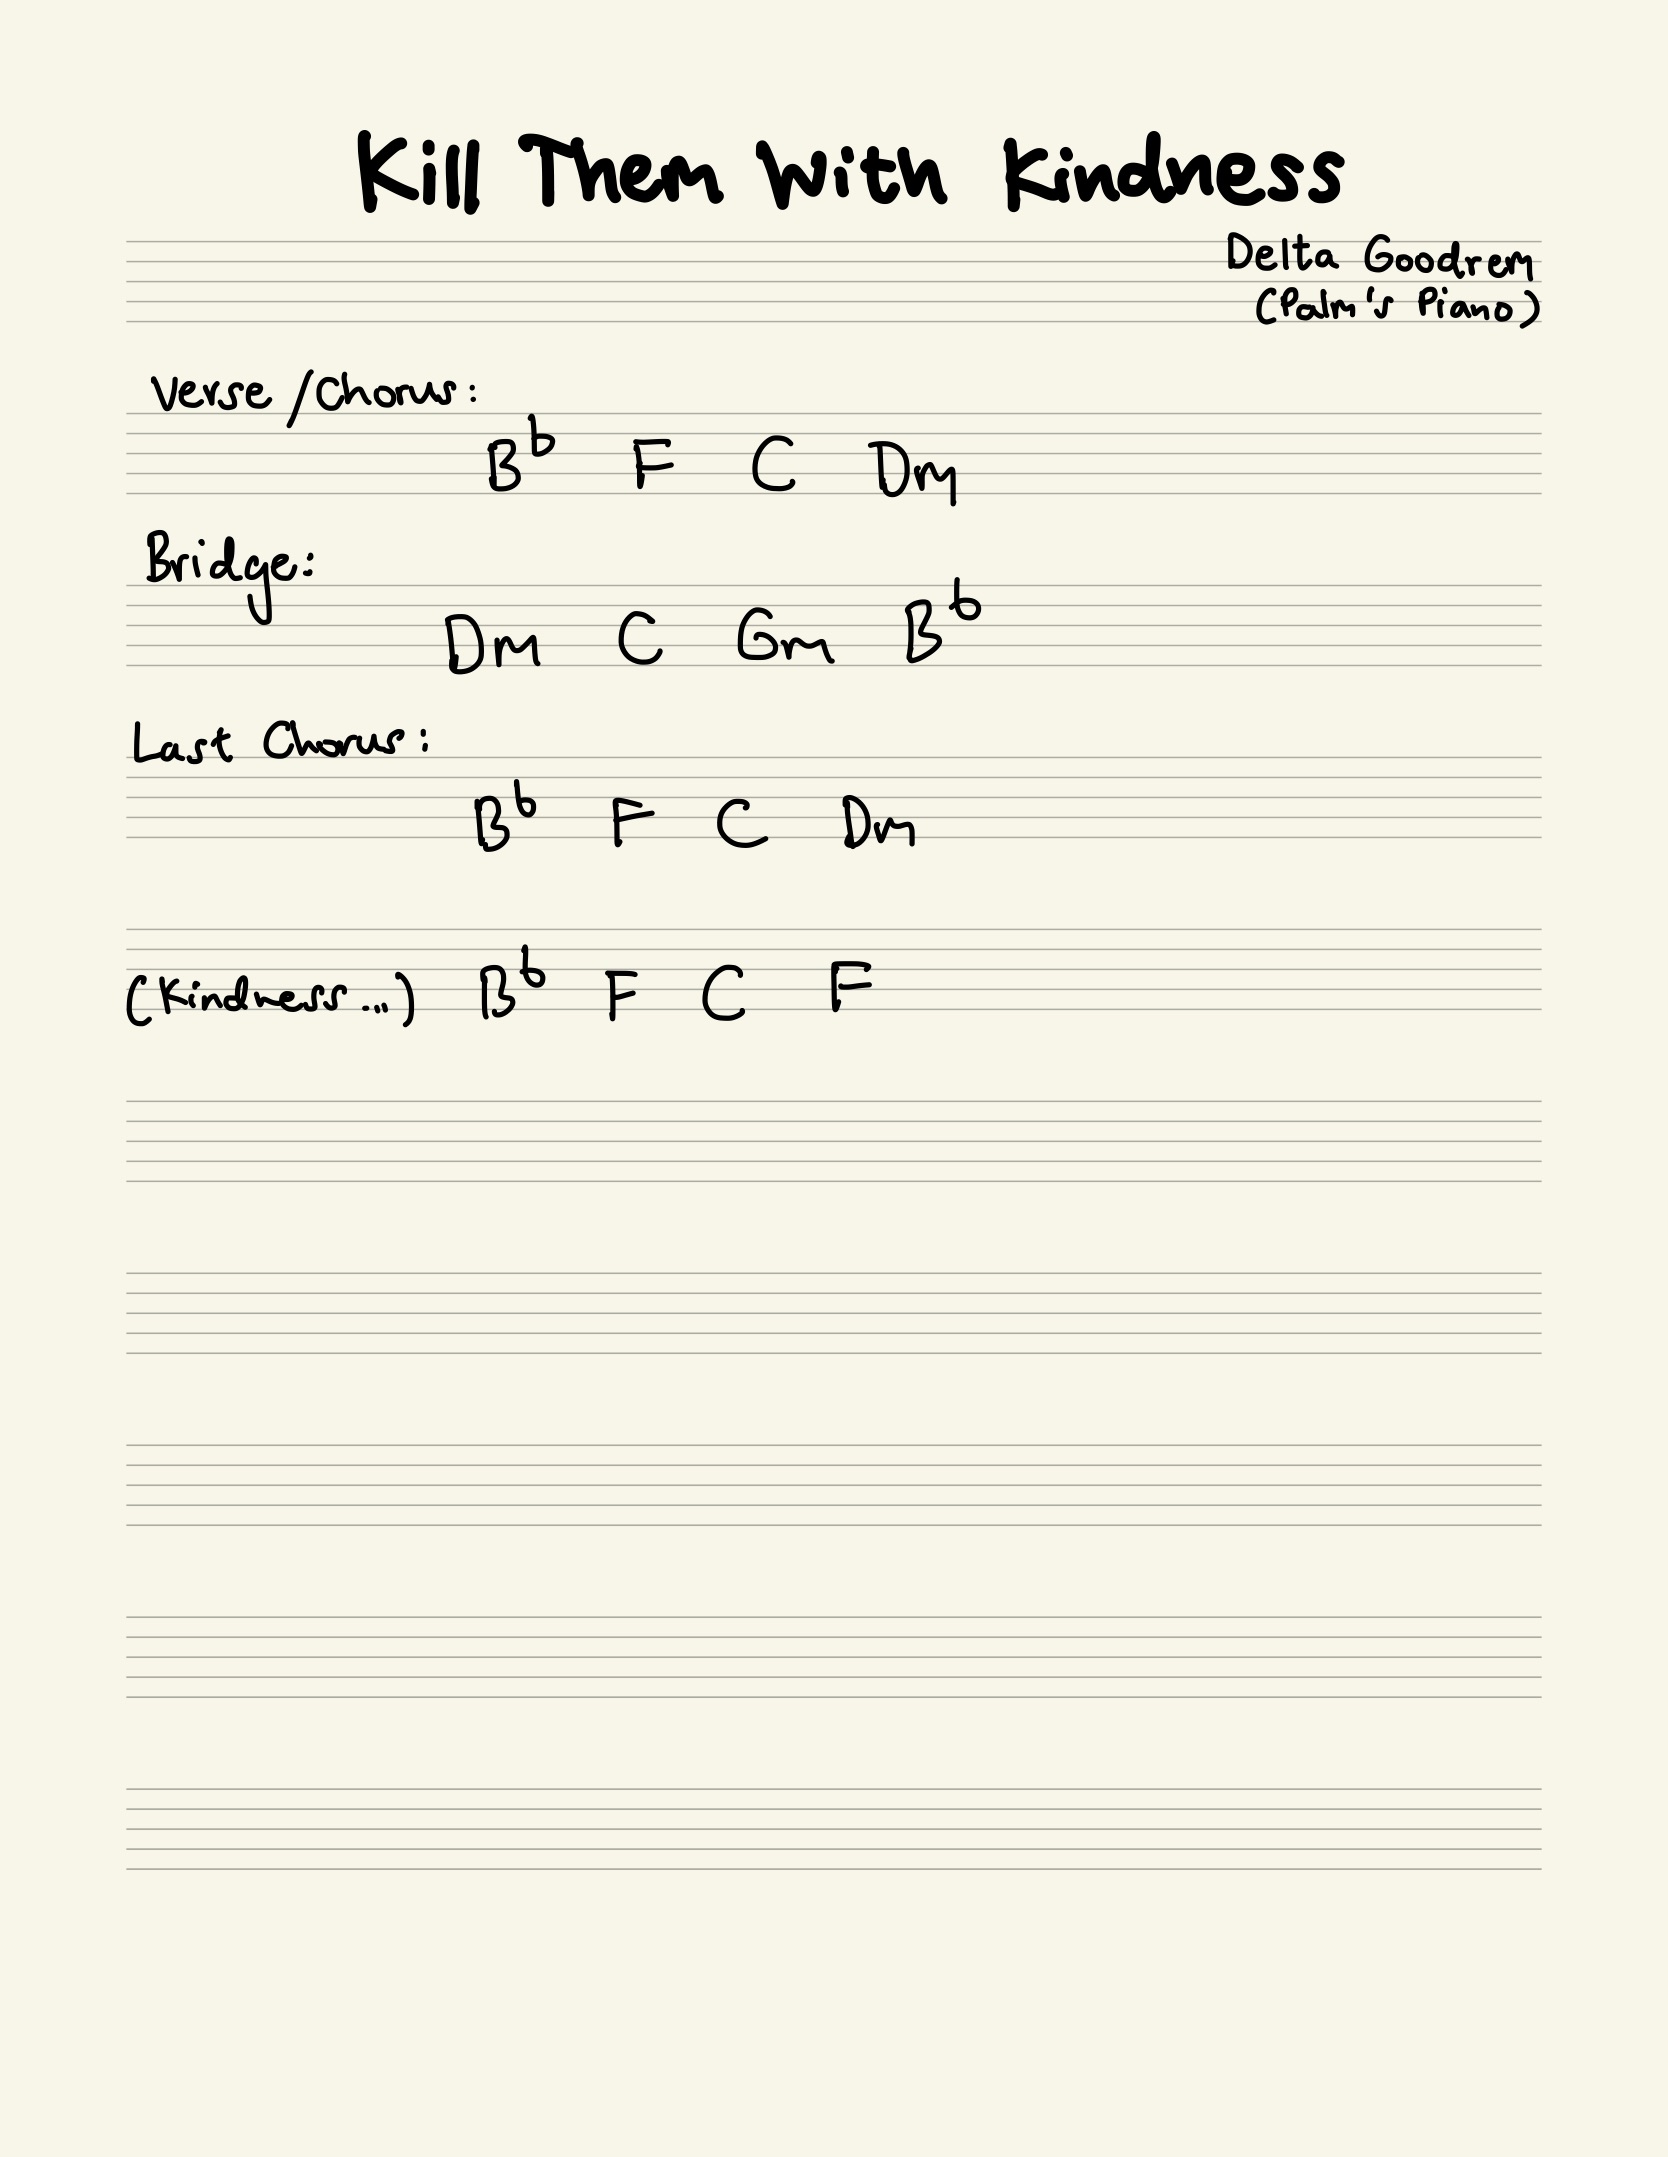 Kill Them With Kindness
Delta Goodrem
(Palm's Piano)
Verse/Chorus:
B♭ F C Dm
Bridge:
Dm C Gm B♭
Last Chorus:
B♭ F C Dm
(Kindness...) B♭ F C F